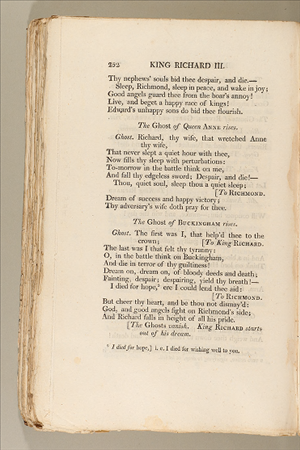 252 KING RICHARD III.
Thy nephews' souls bid thee despair, and die.—
Sleep, Richmond, sleep in peace, and wake in joy;
Good angels guard thee from the boar's annoy!
Live, and beget a happy race of kings!
Edward's unhappy sons do bid thee flourish.
The Ghost of Queen ANNE rises.
Ghost. Richard, thy wife, that wretched Anne
thy wife,
That never slept a quiet hour with thee,
Now fills thy sleep with perturbations:
To-morrow in the battle think on me,
And fall thy edgeless sword; Despair, and die!—
Thou, quiet soul, sleep thou a quiet sleep;
[To RICHMOND.
Dream of success and happy victory;
Thy adversary's wife doth pray for thee.
The Ghost of BUCKINGHAM rises.
Ghost. The first was I, that help'd thee to the
crown; [To King RICHARD.
The last was I that felt thy tyranny:
O, in the battle think on Buckingham,
And die in terror of thy guiltiness!
Dream on, dream on, of bloody deeds and death;
Fainting, despair; despairing, yield thy breath!—
I died for hope,¹ ere I could lend thee aid:
[To RICHMOND.
But cheer thy heart, and be thou not dismay'd:
God, and good angels fight on Richmond's side;
And Richard falls in height of all his pride.
[The Ghosts vanish. King RICHARD starts
out of his dream.
¹ I died for hope,] i. e. I died for wishing well to you.